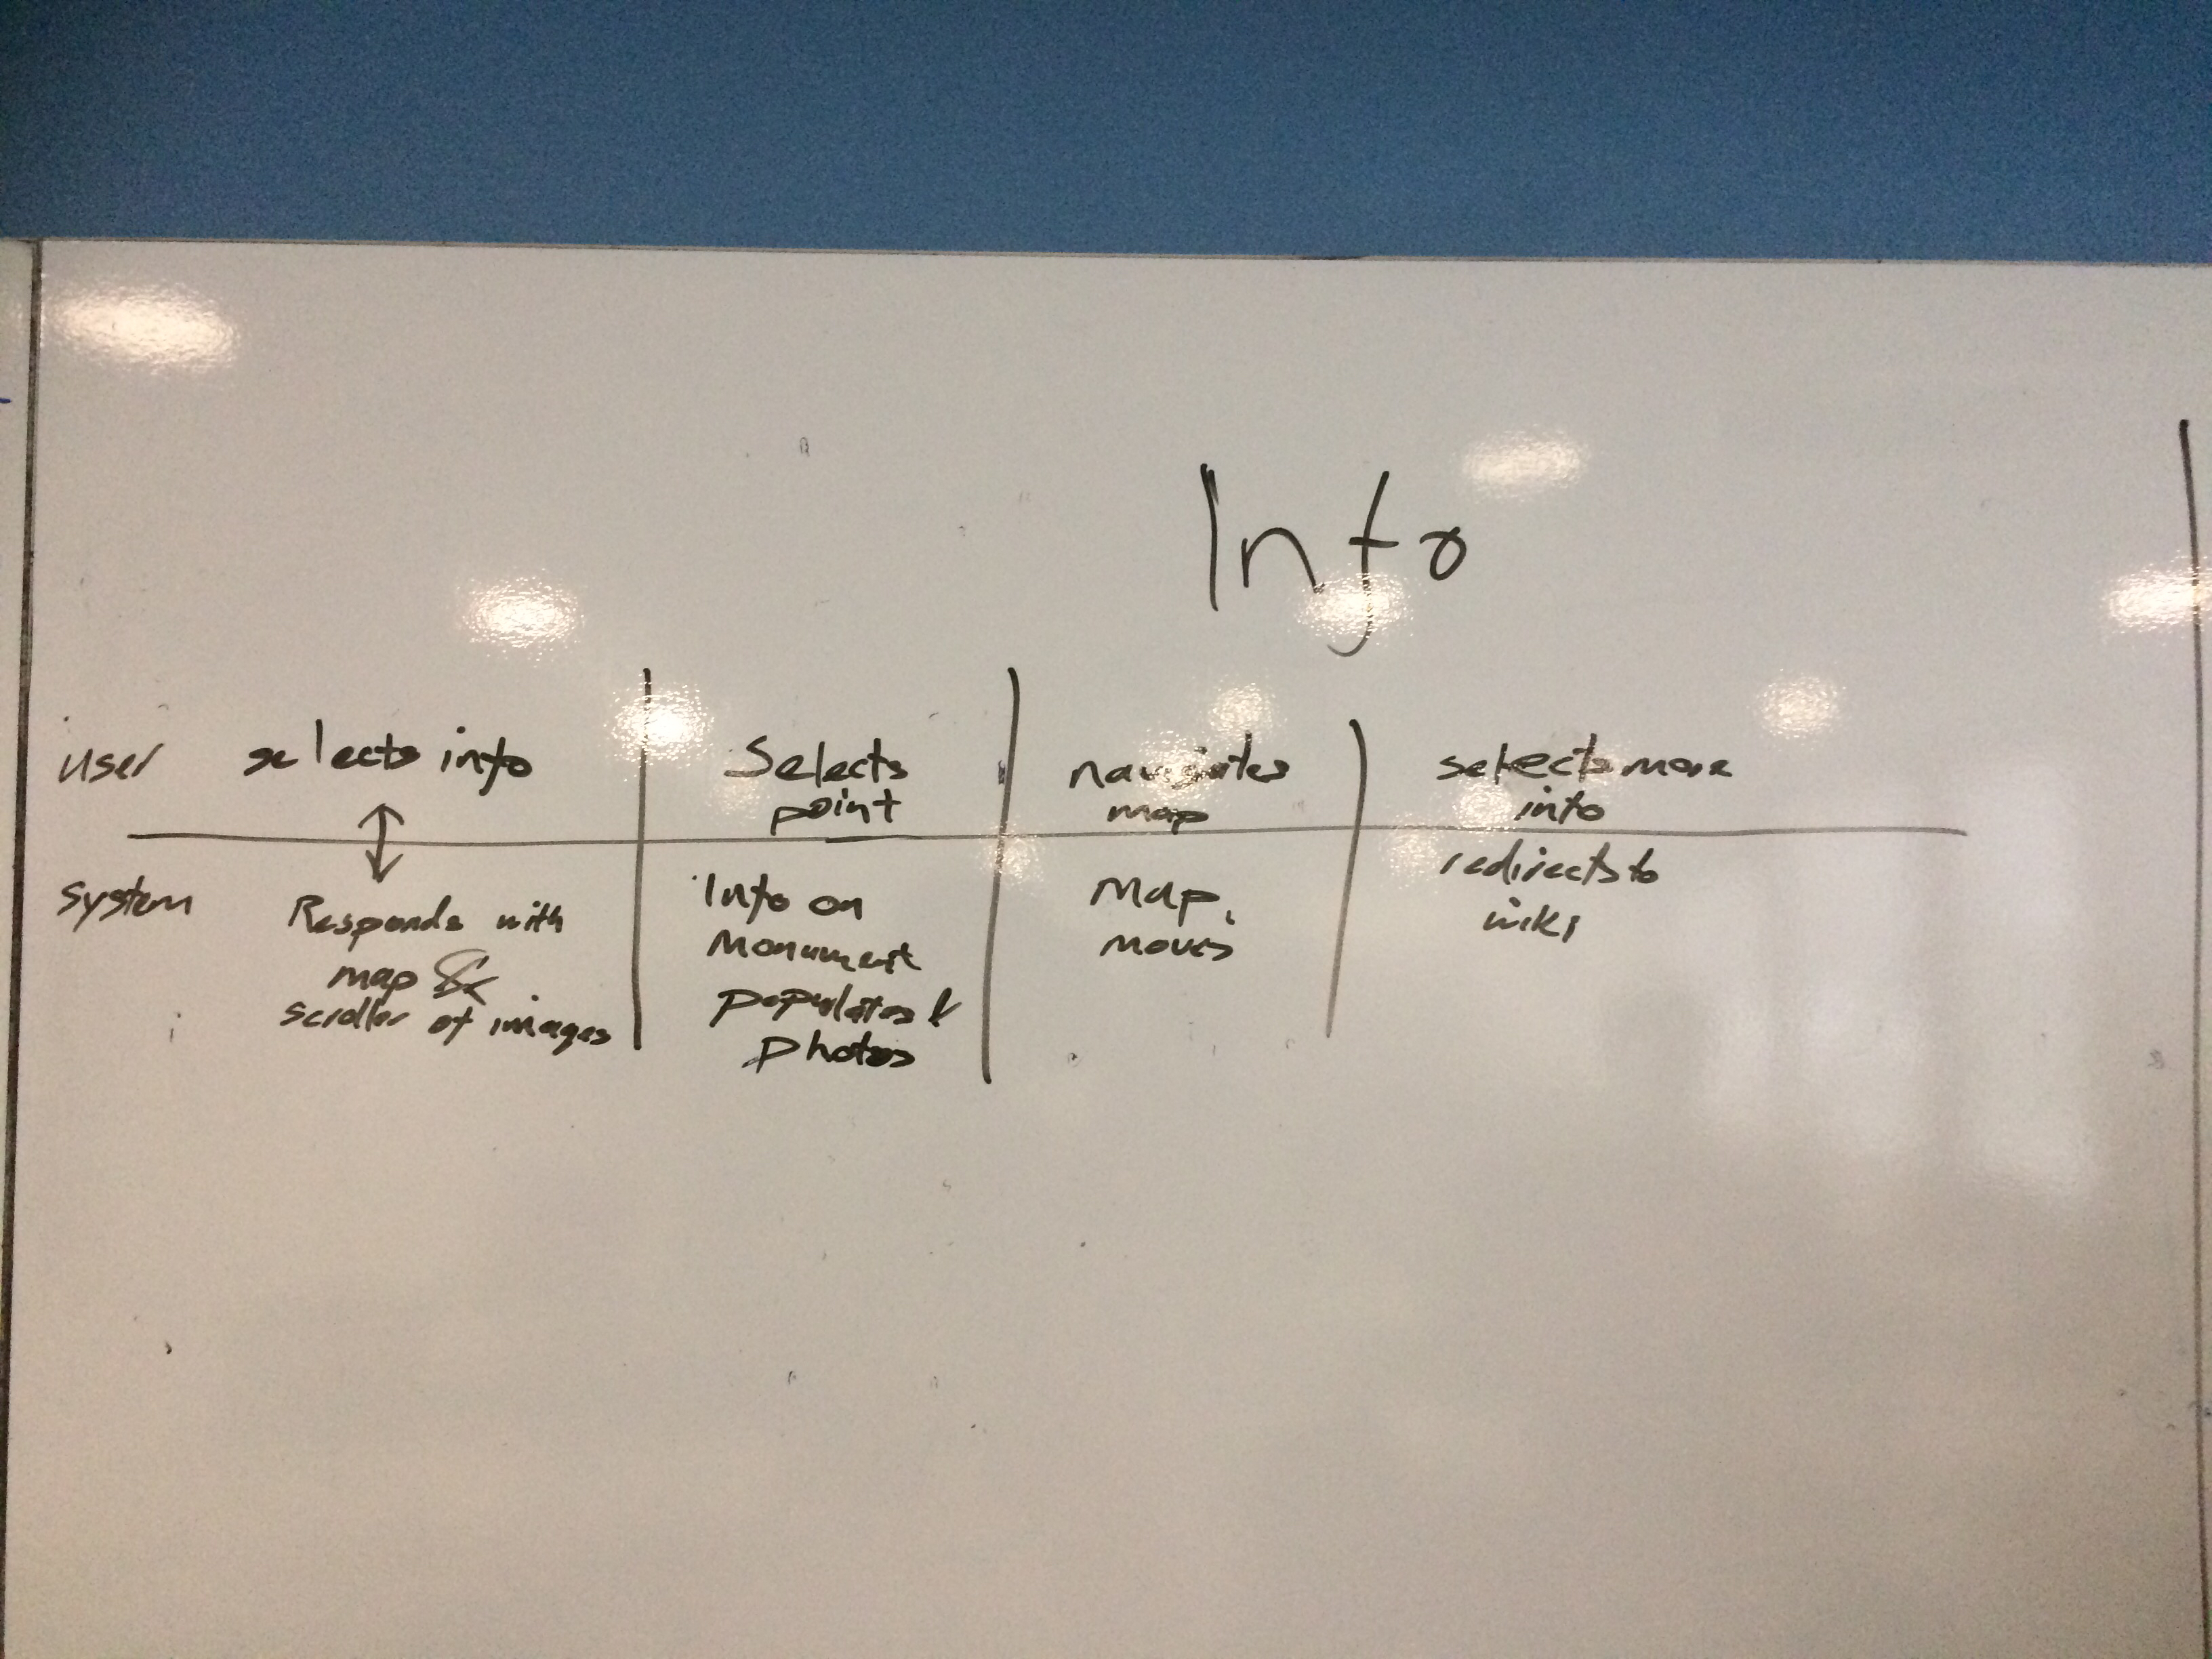 Info
user
selects info
Selects
point
navigates
map
selects more
info
system
Responds with
map &
scroller of images
Info on
Monument
populates &
photos
Map
moves
redirects to
wiki